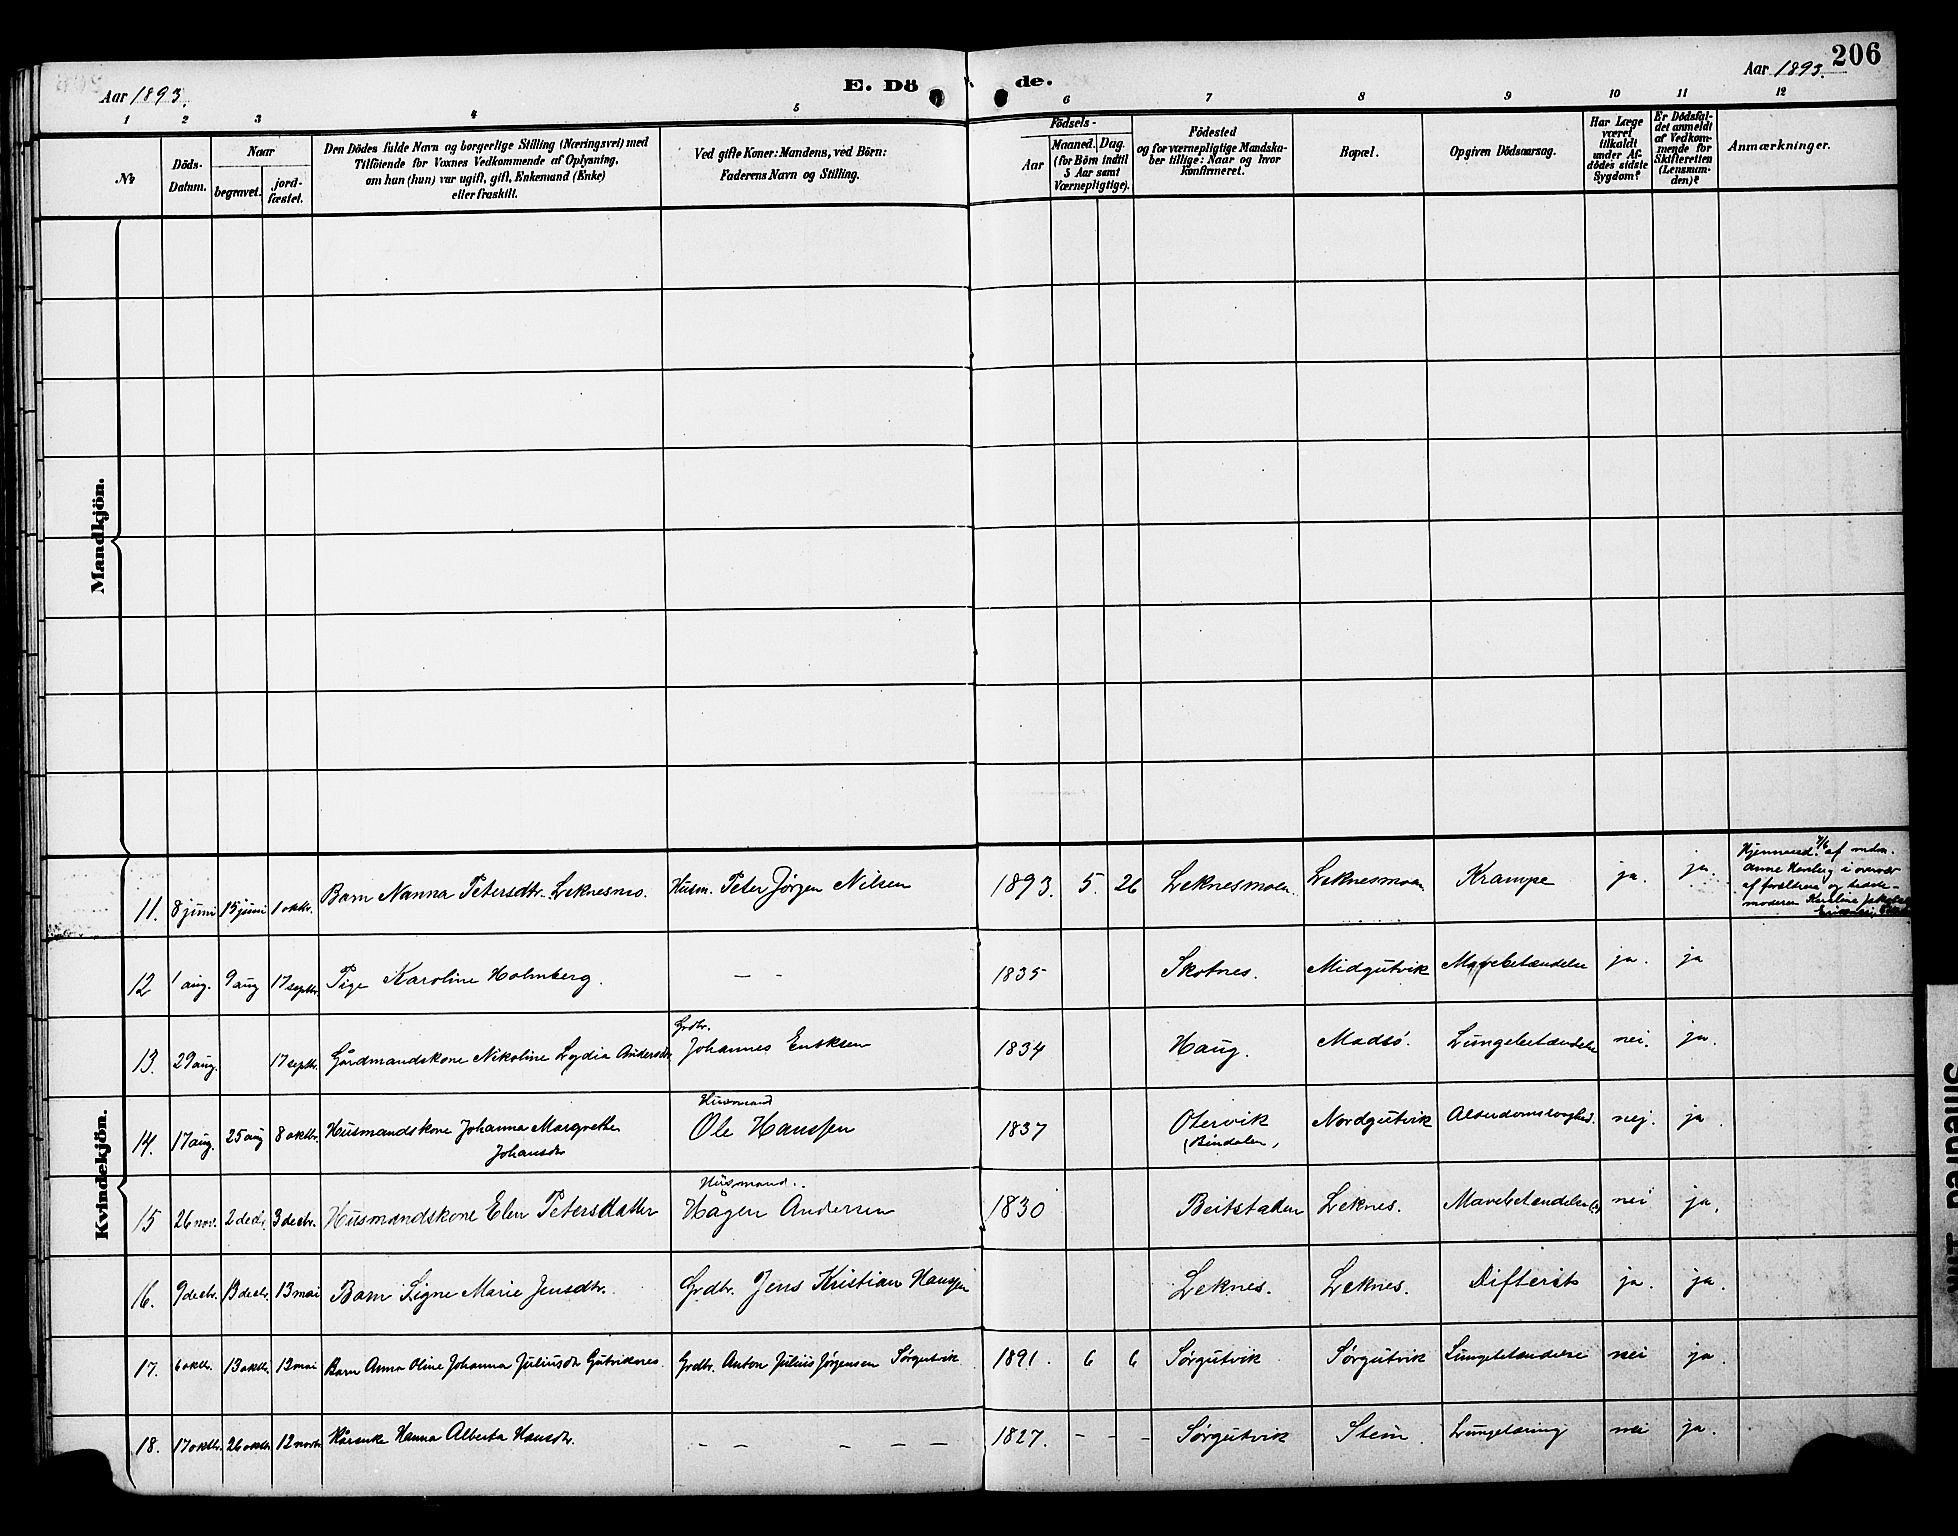 206
Aar 1893.
E. Dö de.
Aar 1893.
1 2 3 4 5 6 7 8 9 10 11 12
No
Döds-Datum.
Naar
begravet.
jord-fæstet.
Den Dödes fulde Navn og borgerlige Stilling (Næringsvei) med
Tilföiende for Voxnes Vedkommende af Oplysning,
om han (hun) var ugift, gift, Enkemand (Enke)
eller fraskilt.
Ved gifte Koner: Mandens, ved Börn:
Faderens Navn og Stilling.
Födsels-
Aar
Maaned. Dag.
(for Börn indtil
5 Aar samt
Værnepligtige).
Födested
og for værnepligtige Mandska-
ber tillige: Naar og hvor
konfirmeret.
Bopæl.
Opgiven Dödsaarsag.
Har Læge
været
tilkaldt
under Af-
dödes sidste
Sygdom?
Er Dödsfal-
det anmeldt
af Vedkom-
mende for
Skifteretten
(Lensman-
den)?
Anmærkninger.
Mandkjön.
Kvindekjön.
11. 8 juni 15 juni 1 oktbr. Barn Nanna Petersdtr. Leknesmo. Husm. Peter Jörgen Nilsen 1893. 5. 26 Leknesmoen Leknesmoen Krampe ja. ja.
Hjemmed. 7/6 af
Anne
af forældrene og
moderen Karoline
12 1 aug. 9 aug 17 septbr. Pige Karoline Holmberg. — — 1835 Skotnes. Midgutvik Mavebetændelse ja. ja
13. 29 aug. 17 septbr. Gårdmandskone Nikoline Lydia Andersdtr Grdbr. Johannes Eriksen 1834 Haug. Madsö. Lungebetændelse nei. ja.
14. 17 aug. 25 aug 8 oktbr. Husmandskone Johanna Margrethe
Johansdtr
Husmand
Ole Hanssen 1837 Otervik
(Bindalen)
Nordgutvik Alderdomssvaghed. nej. ja
15 26 nov. 2 decbr. 3 decbr. Husmandskone Elen Petersdatter
Husmand.
Hågen Andersen 1830 Beitstaden Leknes. Mavebetændelse (?) nei ja.
16. 9 decbr. 13 decbr. 13 mai Barn Signe Marie Jensdtr. Grdbr. Jens Kristian Hanssen Leknes. Leknes. Difterit ja. ja.
17. 6 oktbr. 13 oktbr. 12 mai Barn Anna Oline Johanna Juliusdtr Gutviknes. Grdbr. Anton Julius Jörgensen Sørgutvik 1891. 6 6 Sørgutvik Sørgutvik Lungebetændelse nei ja.
18. 17 oktbr. 26 oktbr. 12 novbr. Kårenke Hanna Alberta Hansdtr. — — — — — 1827. — — — Sørgutvik Stein. Lungetæring nei ja.